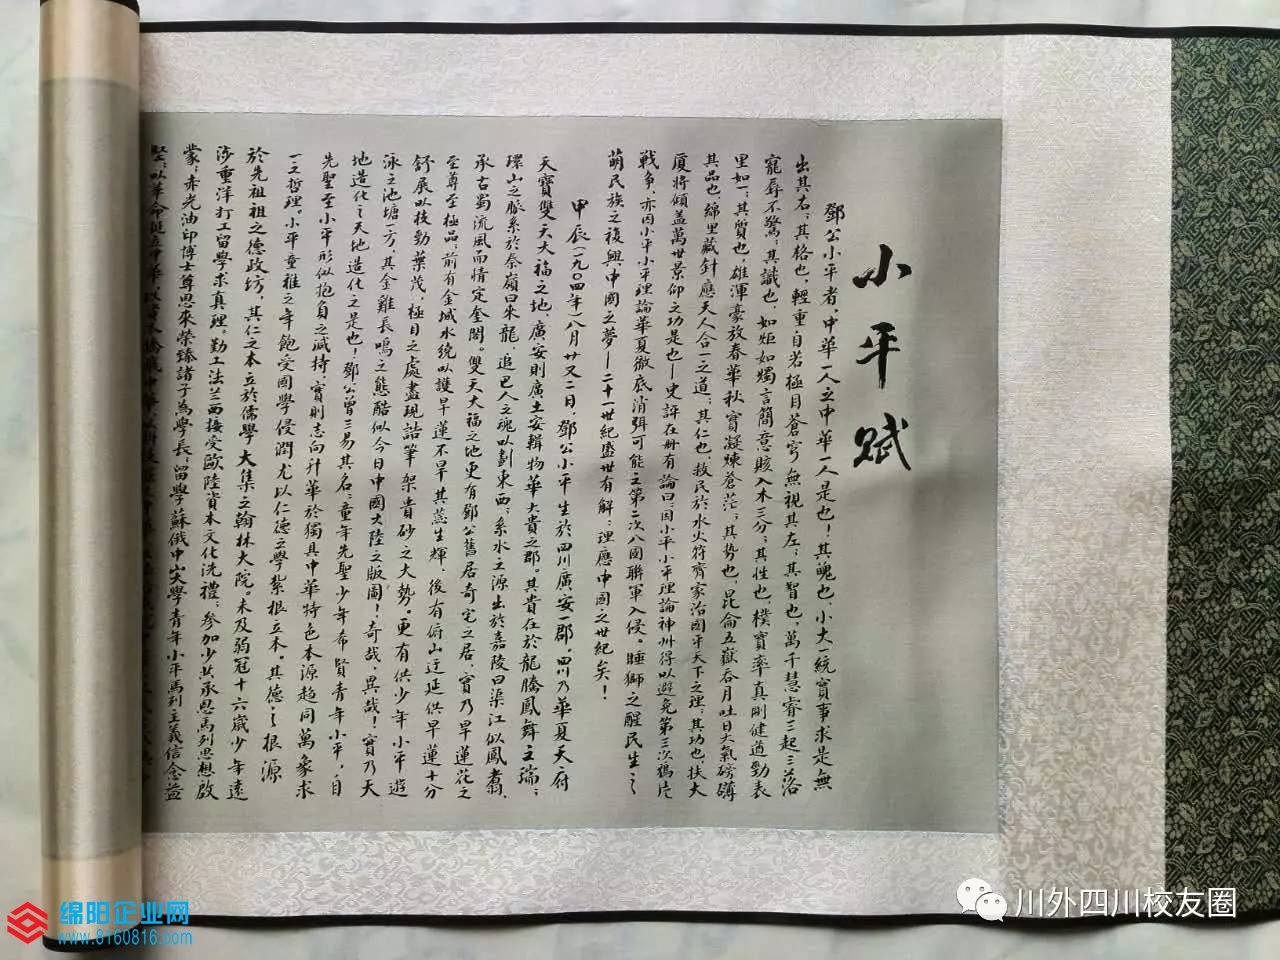 小平赋
鄧公小平者，中華一人之中華一人是也！其魄也，小大一統實事求是無
出其右；其格也，輕重自若極目蒼穹無視其左；其智也，萬千慧睿三起三落
寵辱不驚；其識也，如炬如燭言簡意賅入木三分；其性也，樸實率真剛健遒勁表
里如一；其質也，雄渾豪放春華秋實凝煉蒼茫；其势也，昆侖五嶽吞月吐日大氣磅礴
其品也，綿里藏針應天人合一之道；其仁也，救民於水火符齊家治國平天下之理；其功也，扶大
厦將傾盖萬世景仰之功是也—史評在册有論曰因小平小平理論神州得以避免第三次鴉片
戦争，亦因小平小平理論華夏徹底消弭可能之第二次八國聯軍入侵。睡獅之醒民生之
萌民族之復興中國之夢—二十一世紀盛世有解：理應中國之世紀矣！
甲辰（一九〇四年）八月廿又二日，鄧公小平生於四川廣安一郡。四川乃華夏天府
天寶雙天大福之地，廣安則廣土安輯物華大貴之郡。其貴在於龍騰鳳舞之瑞；
環山之脈系於秦嶺曰来龍，追巴人之魂以劃東西；系水之源出於嘉陵曰渠江似鳳翥，
承古蜀流風而情定金閣。雙天大福之地更有鄧公舊居奇宅之居，實乃旱蓮花之
至尊至極品；前有金城水繞以護旱蓮不旱其蕊生輝，後有俯山迂延供旱蓮十分
舒展以枝勁葉茂，極目之處盡現詰筆架青砂之大勢。更有供少年小平遊
泳之池塘一方，其金雞長鳴之態酷似今日中國大陸之版圖！奇哉，異哉！實乃天
地造化之天地造化之是也！鄧公曾三易其名；童年先聖少年希賢青年小平，自
先聖至小平形似抱負之減持，實則志向升華於獨具中華特色本源趋同萬象求
一之哲理。小平童稚之年飽受國學侵潤尤以仁德之學紮根立本。其德之根源
於先祖祖之德政坊，其仁之本立於儒學大集之翰林大院。未及弱冠十六歲少年遠
涉重洋打工留學求真理。勤工法兰西接受歐陸資本文化洗禮；参加少共承恩馬列思想啟
蒙；赤光油印博士尊恩來榮臻諸子為學長；留學蘇俄中山大學青年小平馬列主義信念益
堅；以革命挺立中華
绵阳企业网
www.8160816.com
川外四川校友圈